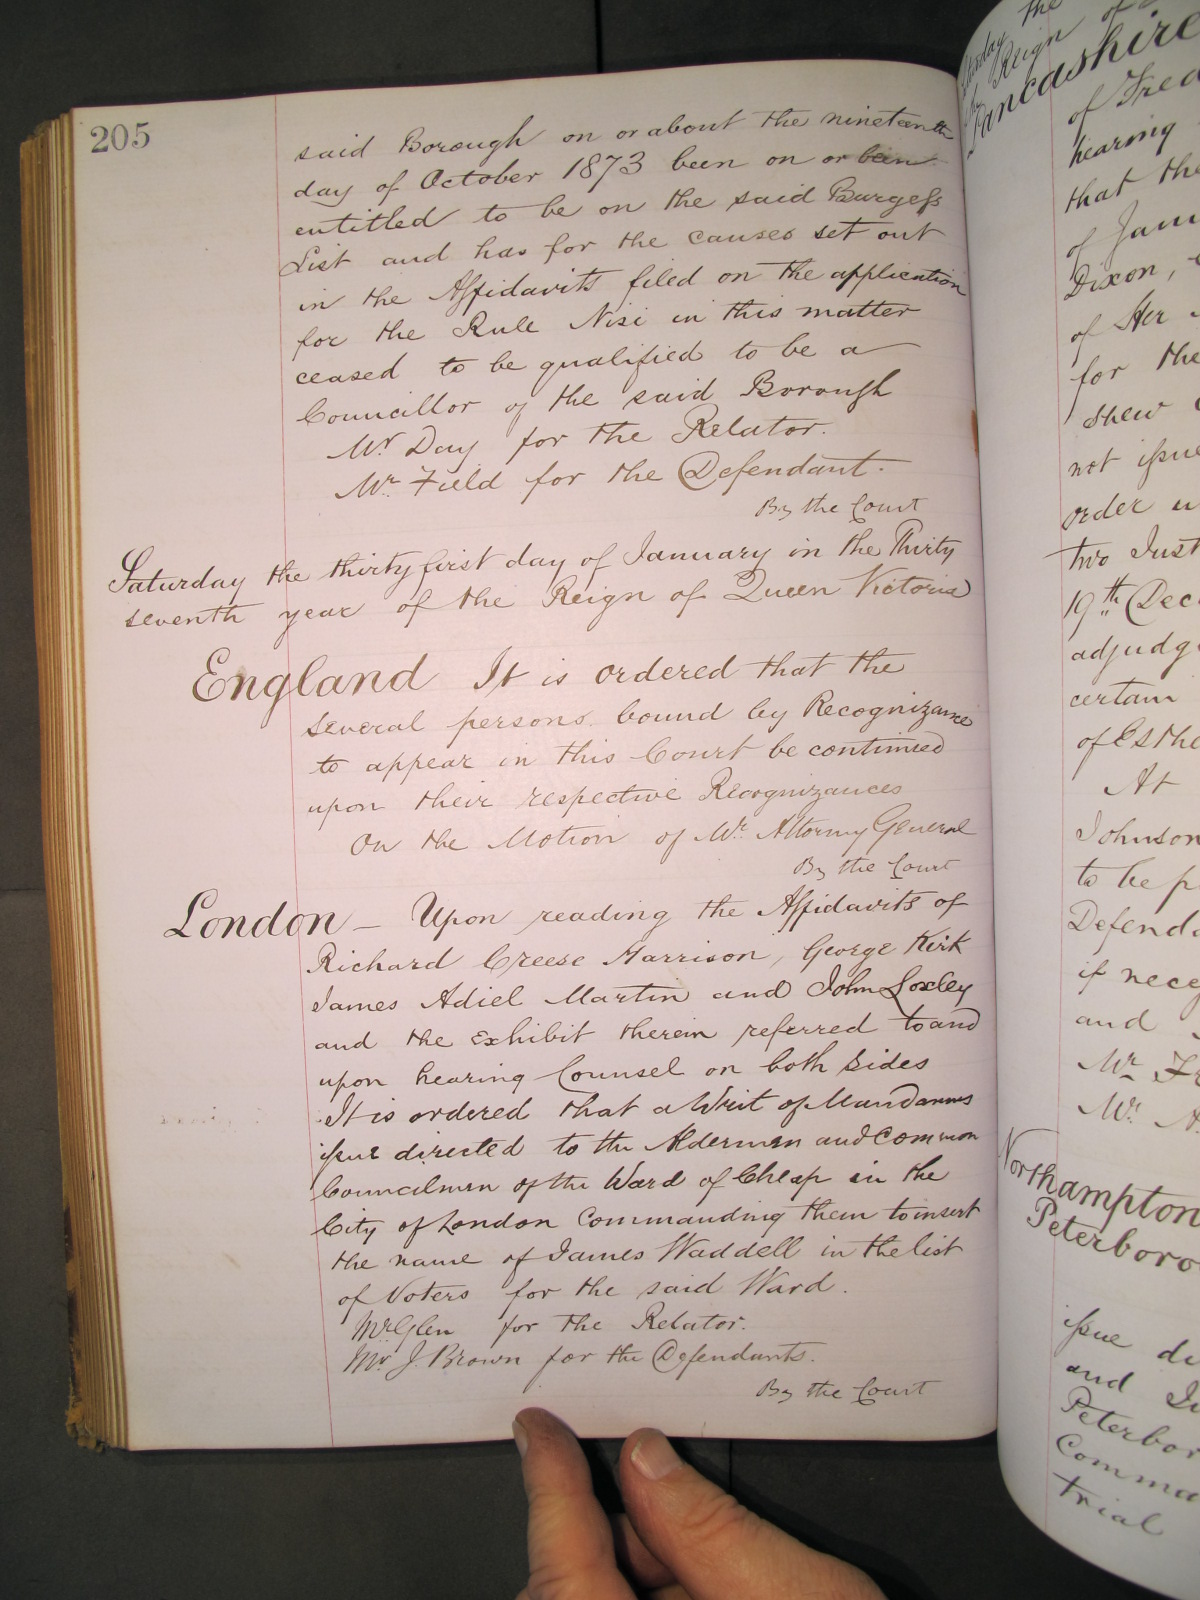 205
said Borough on or about the nineteenth
day of October 1873 been on or been
entitled to be on the said Burgess
List and has for the causes set out
in the Affidavits filed on the application
for the Rule Nisi in this matter
ceased to be qualified to be a
Councillor of the said Borough
Mr. Day for the Relator.
Mr. Field for the Defendant.
By the Court
Saturday the thirty first day of January in the Thirty
seventh year of the Reign of Queen Victoria
England It is ordered that the
several persons bound by Recognizance
to appear in this Court be continued
upon their respective Recognizances
On the Motion of Mr. Attorney General
By the Court
London – Upon reading the Affidavits of
Richard Creese Harrison, George Kirk
James Adiel Martin and John Loxley
and the exhibit therein referred to and
upon hearing Counsel on both sides
It is ordered that a Writ of Mandamus
issue directed to the Aldermen and Common
Councilmen of the Ward of Cheap in the
City of London commanding them to insert
the name of James Waddell in the list
of Voters for the said Ward.
Mr Glen for the Relator.
Mr. J. Brown for the Defendants.
By the Court
the
Reign of
Lancashire
of
hearing
that the
of
Dixon,
of Her
for the
shew
not issue
order
two
19th Dec
adjudg
certain
of Esthe
At
Johnson
to be p
Defend
if nece
and
Mr.
Mr.
Northampton
Peterboro
issue di
and
Peterbor
Comma
trial